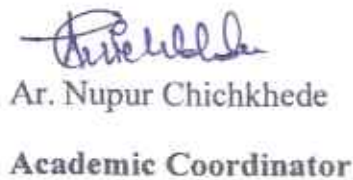 Ar. Nupur Chichkhede
Academic Coordinator